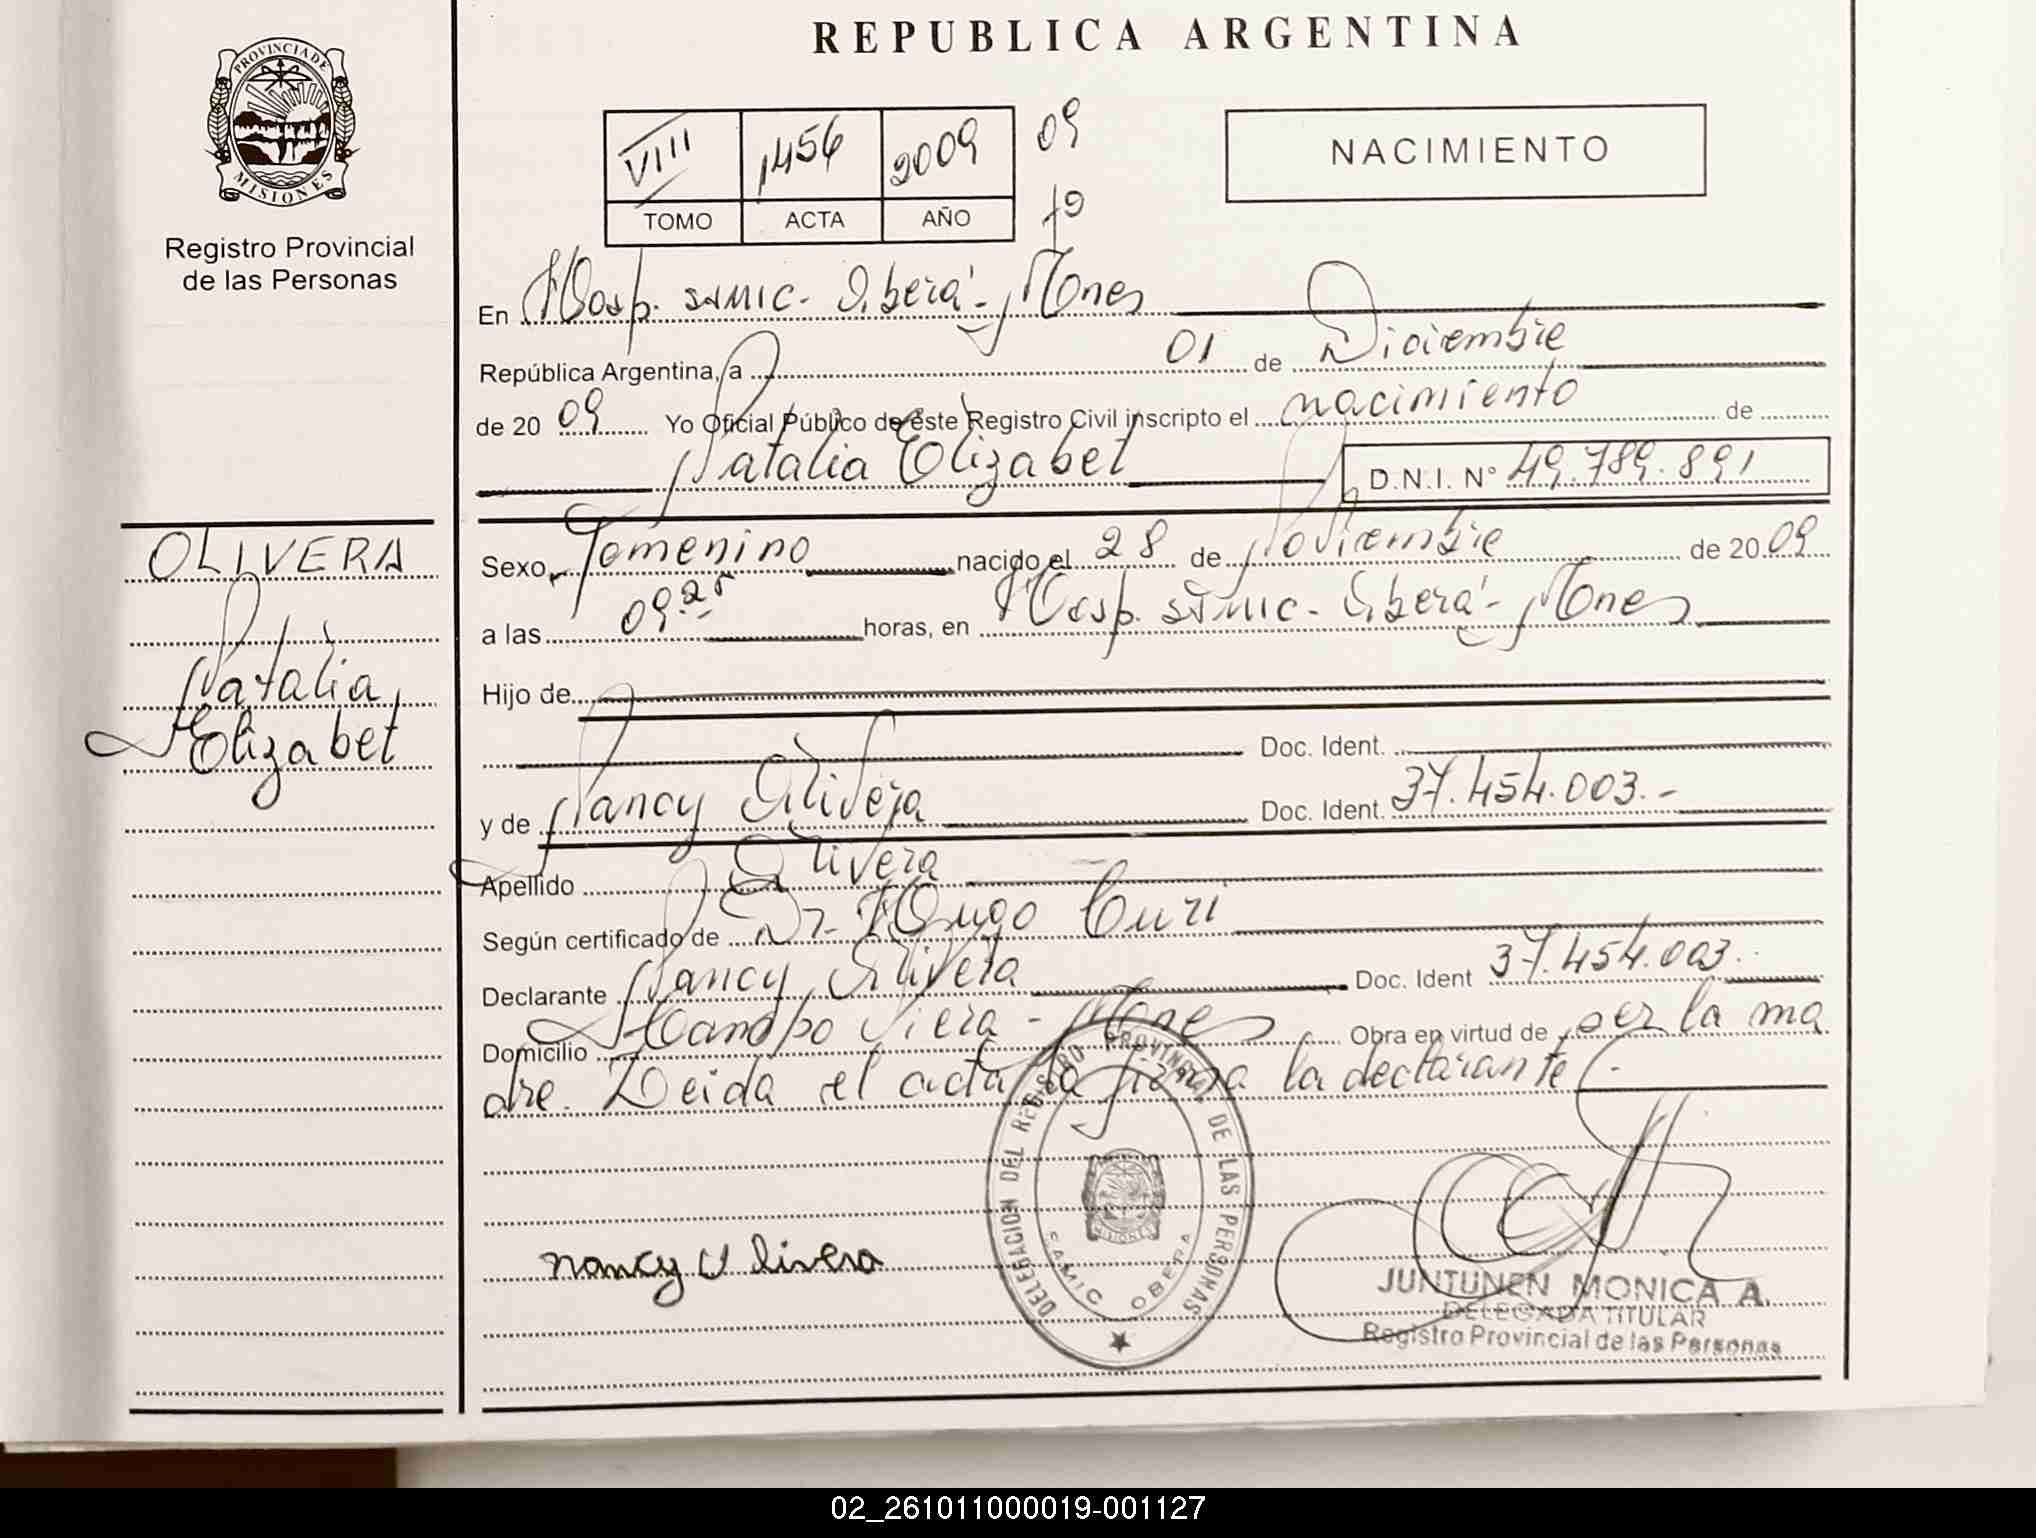 REPUBLICA ARGENTINA
PROVINCIA DE
MISIONES
Registro Provincial
de las Personas
VIII 1456 2009 09
TOMO ACTA AÑO
NACIMIENTO
En Hosp. SAMIC - Oberá - Mones
República Argentina, a 01 de Diciembre
de 2009 Yo Oficial Público de este Registro Civil inscripto el nacimiento de
Natalia Elizabet D.N.I. N° 49.789.891
OLIVERA
Natalia
Elizabet
Sexo Femenino nacido el 28 de Noviembre de 2009
a las 09.25 horas, en Hosp. SAMIC - Oberá - Mones
Hijo de
Doc. Ident.
y de Nancy Olivera Doc. Ident. 37.454.003.-
Apellido Olivera
Según certificado de Dr. Hugo Curi
Declarante Nancy Olivera Doc. Ident 37.454.003.
Domicilio Campo Viera - Mones Obra en virtud de ser la ma
dre. Leida el acta la firma la declarante.-
nancy Olivera
DELEGACION DEL REGISTRO PROVINCIAL DE LAS PERSONAS
MISIONES
SAMIC OBERA
JUNTUNEN MONICA A.
DELEGADA TITULAR
Registro Provincial de las Personas
02_261011000019-001127